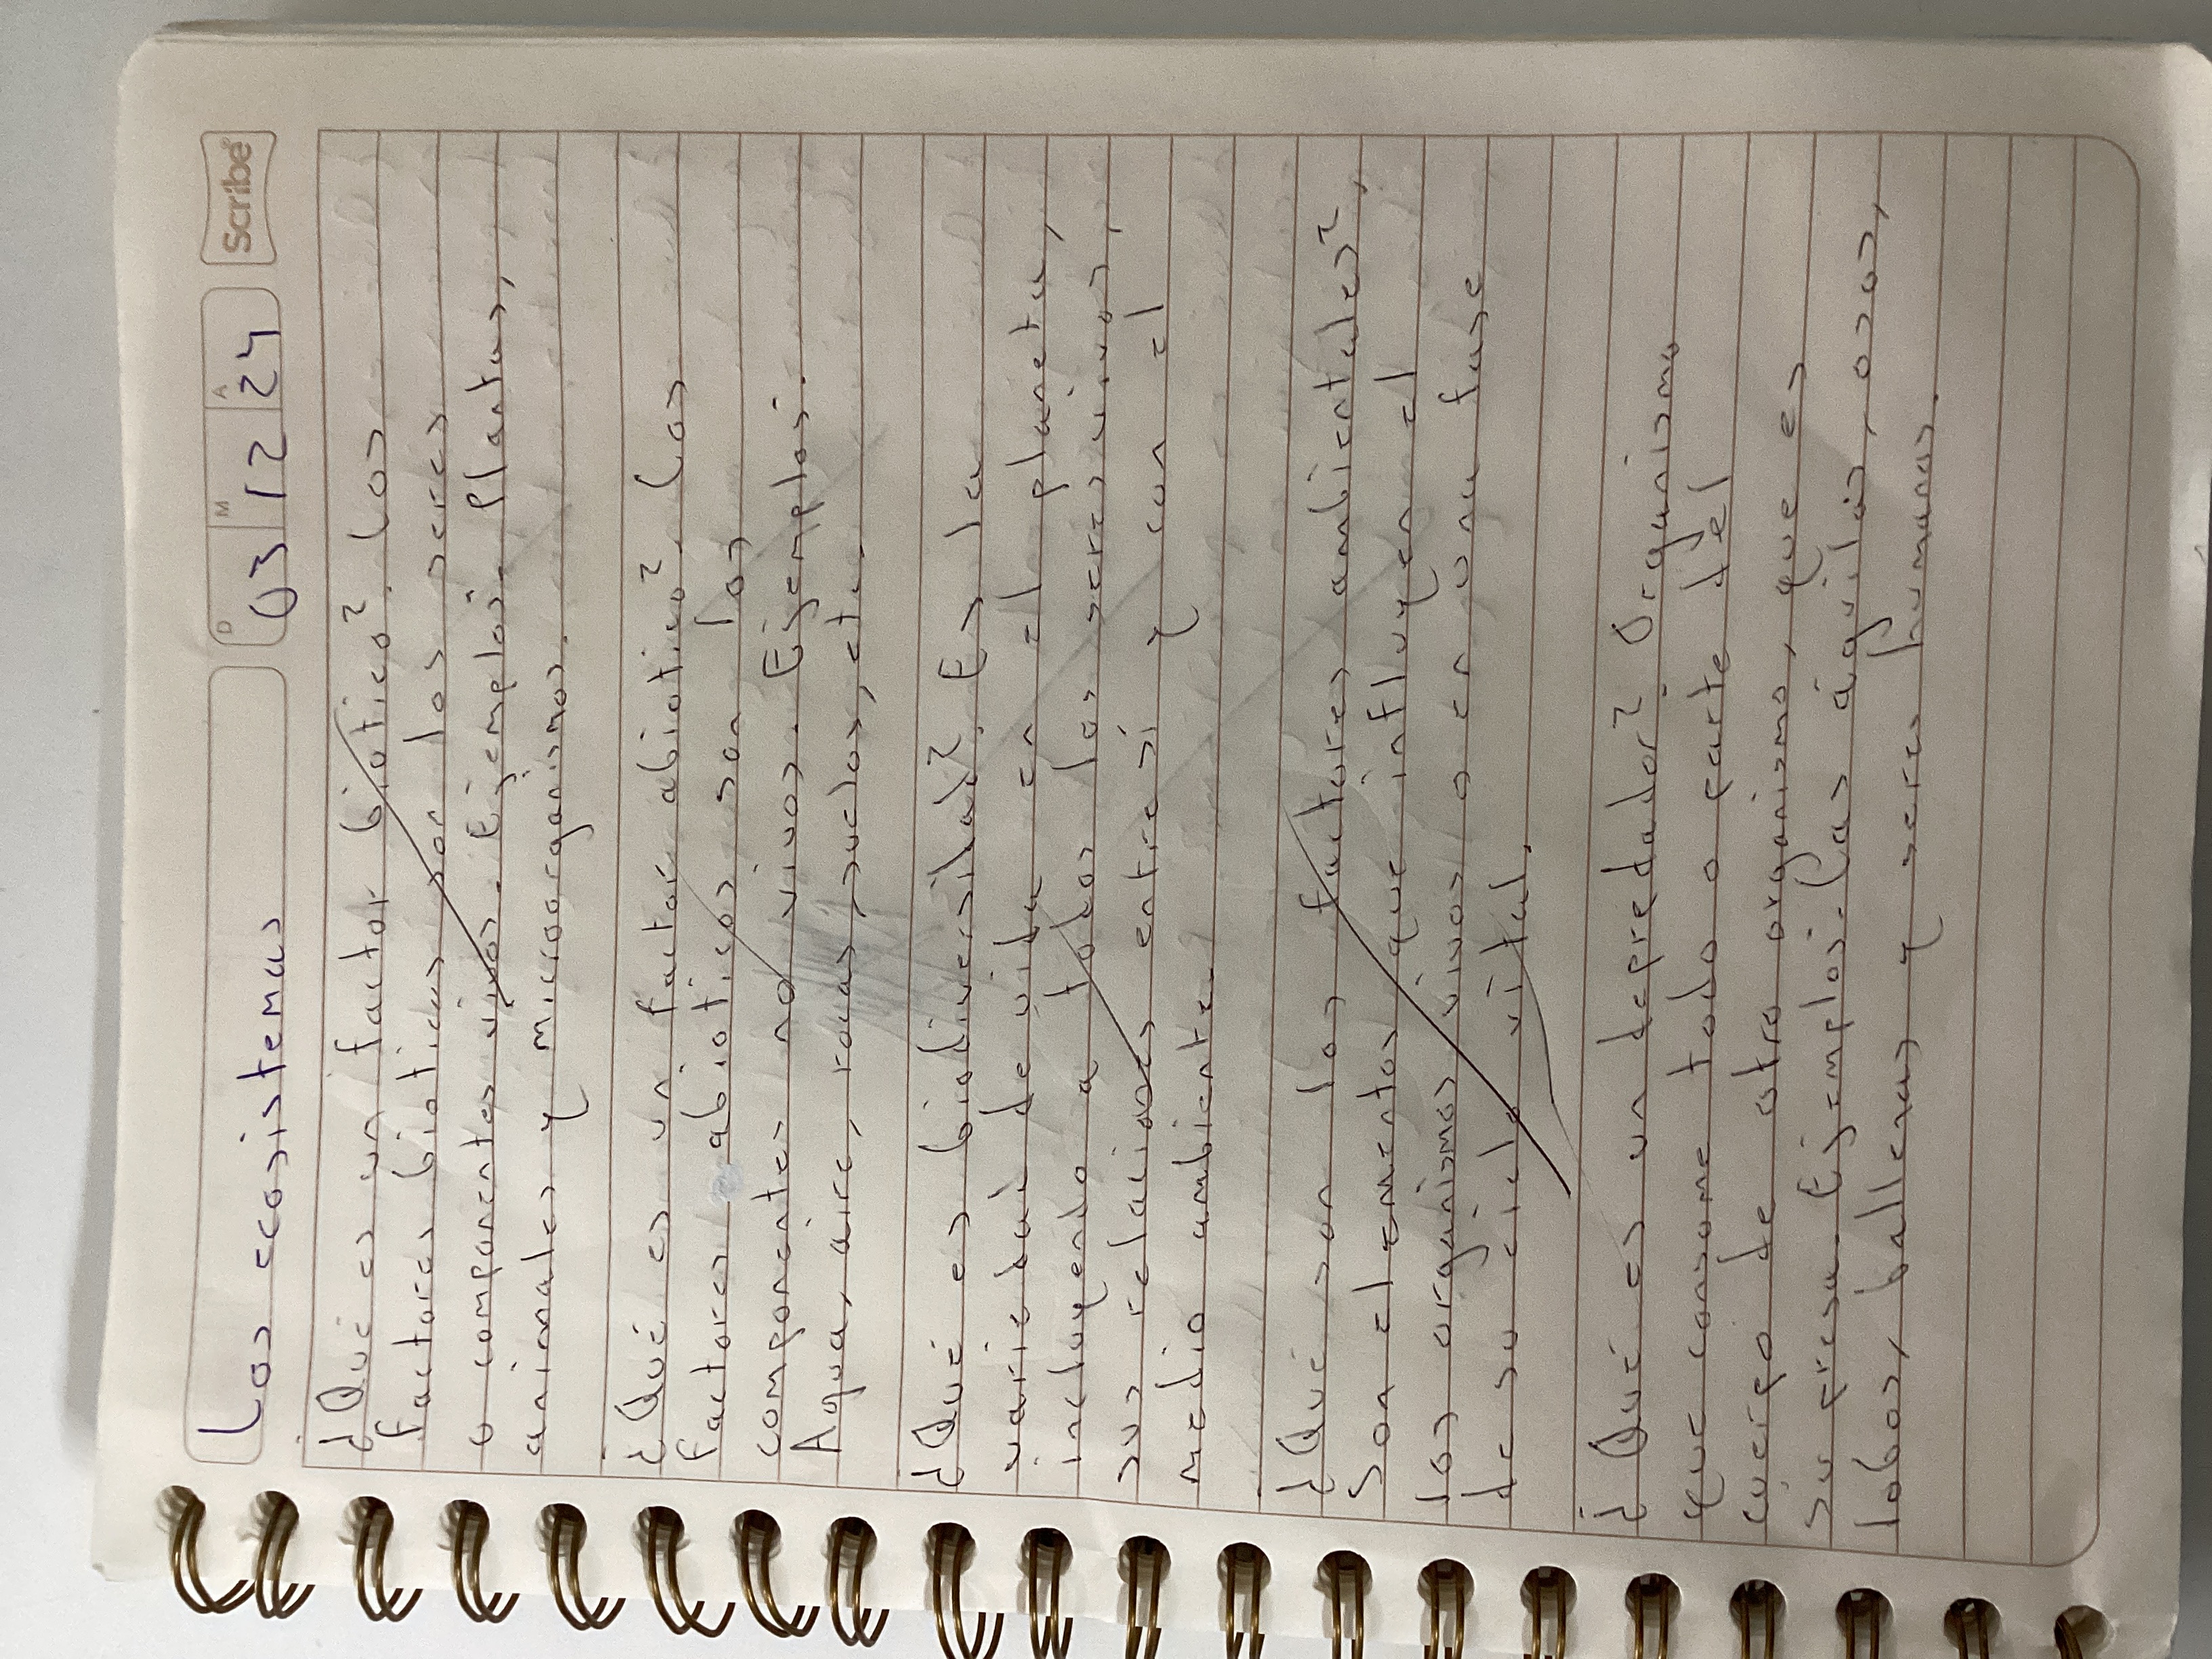 Los ecosistemas
D M A
03 12 24
Scribe
¿Qué es un factor biótico?. Los
factores bióticos son los seres
o componentes vivos. Ejemplos: Plantas,
animales y microorganismos.
¿Qué es un factor abiótico?. Los
factores abióticos son los
componentes no vivos. Ejemplos:
Agua, aire, rocas, suelos, etc.
¿Qué es biodiversidad?. Es la
variedad de vida en el planeta,
incluyendo a todos los seres vivos,
sus relaciones entre sí y con el
medio ambiente.
¿Qué son los factores ambientales?,
Son elementos que influyen el
los organismos vivos o en una fase
de su ciclo vital.
¿Qué es un depredador?. Organismo
que consume todo o parte del
cuerpo de otro organismo, que es
su presa. Ejemplos: Las águilas, osos,
lobos, ballenas y seres humanos.